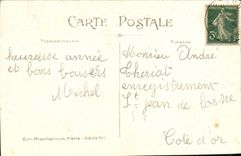 CARTE POSTALE
CORRESPONDANCE
ADRESSE
heureuse année
et bons baisers
Michel
Monsieur André
Theriat
enregistrement
St jean de losne
Cote d'or